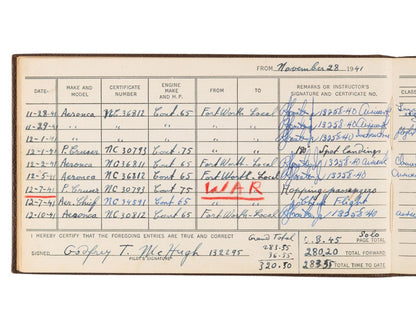 FROM November 28 1941
DATE- MAKE AND MODEL CERTIFICATE NUMBER ENGINE MAKE AND H.P. FROM TO REMARKS OR INSTRUCTOR'S SIGNATURE AND CERTIFICATE NO.
11-28-41 Aeronca NC 36812 Cont. 65 Fort Worth-Local 13258-40
11-29-41 " " " " " " 13258-40
12-1-41 " " " " " " 13258-40
12-1-41 P. Cruiser NC 30793 Cont. 75 " " 180° Spot Landings
12-2-41 Aeronca NC 36811 Cont. 65 Fort Worth-Local 13258-40
12-5-11 Aeronca NC 36812 Cont. 65 Fort Worth-Local 13258-40
12-7-41 P. Cruiser NC 30793 Cont 75 WAR Hopping passengers
12-7-41 Aer. Chief NC 34591 Cont 65 Flight
12-10-41 Aeronca NC 36812 Cont. 65 Fort Worth-Local 13258-40
I HEREBY CERTIFY THAT THE FOREGOING ENTRIES ARE TRUE AND CORRECT Grand Total 8.45 Solo PAGE TOTAL
283.55
SIGNED Godfrey T. McHugh 132295 36.35 280.20 TOTAL FORWARD
PILOT'S SIGNATURE
320.30 TOTAL TIME TO DATE